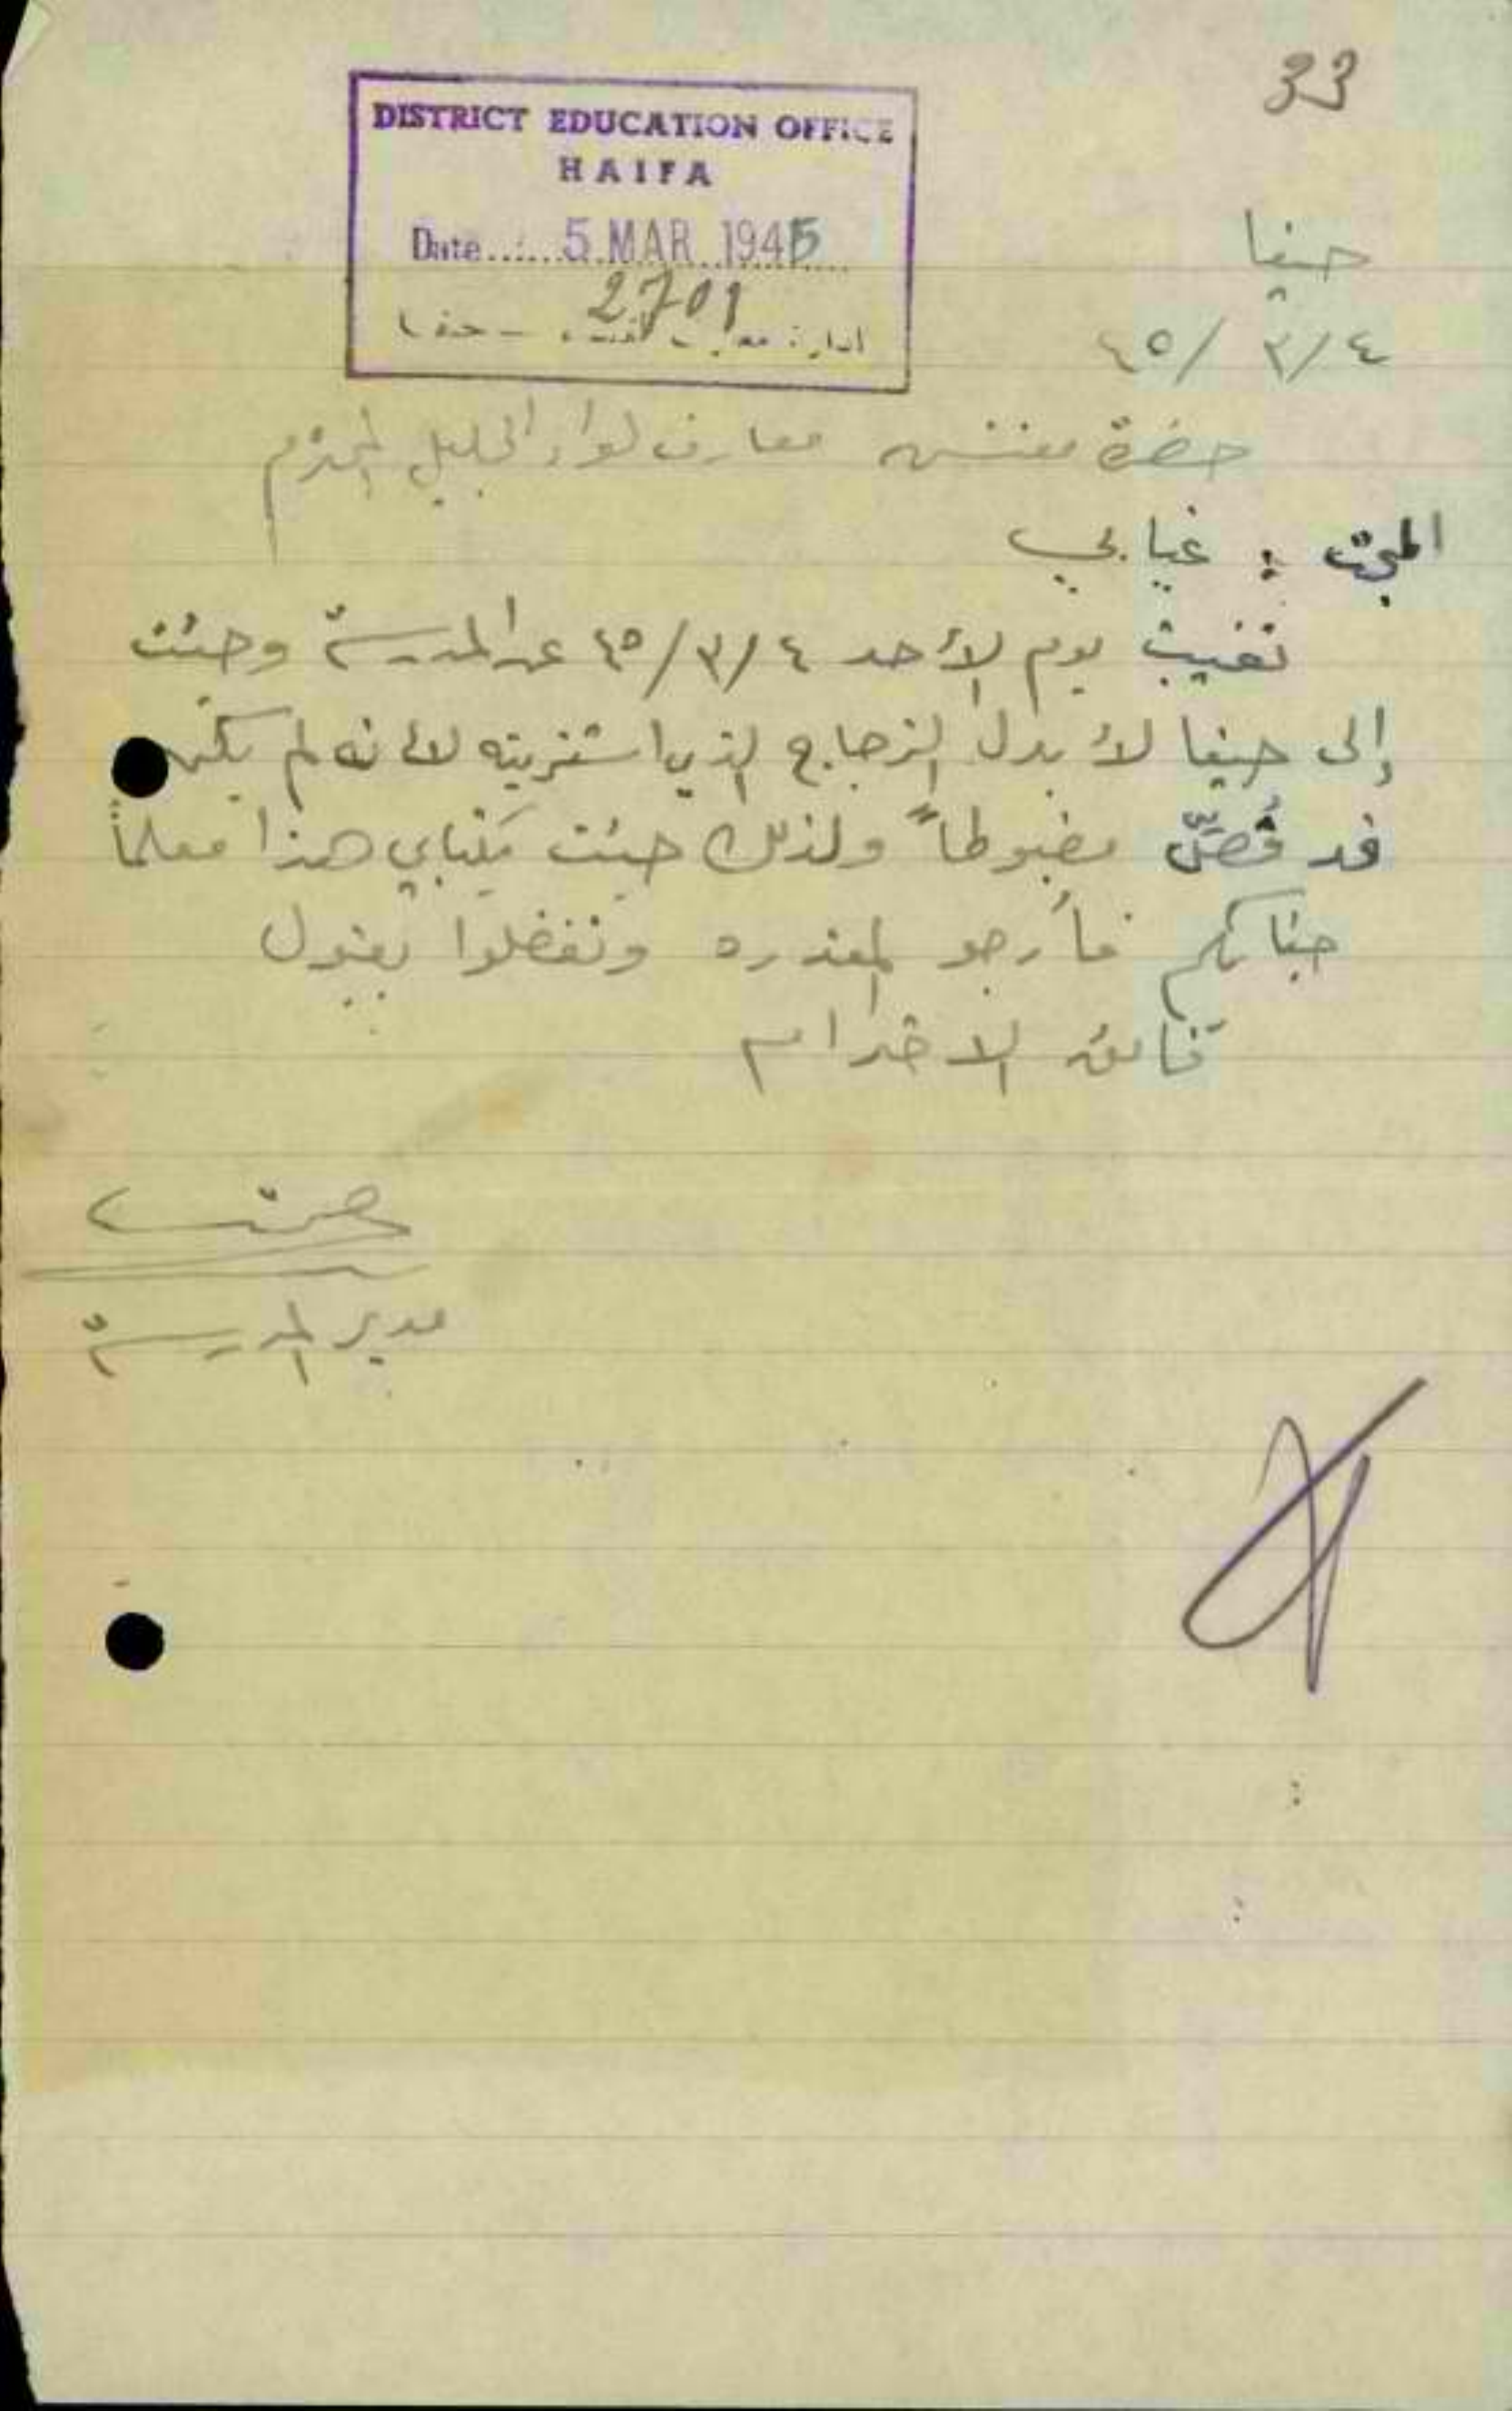 33
DISTRICT EDUCATION OFFICE
HAIFA
Date 5 MAR 1945
2701
حيفا
٤/٣/٤٥
حضرة مفتش معارف لواء الجليل المحترم
المبحث : غيابي
تغيبت يوم الأحد ٤/٣/٤٥ عن المدرسة وجئت
إلى حيفا لأبدل الزجاج الذي اشتريته لأنه لم يكن
قد قُصَّ مضبوطاً ولذلك جئت بكتابي هذا معلماً
جنابكم فأرجو المعذره وتفضلوا بقبول
فائق الاحترام
مدير المدرسة